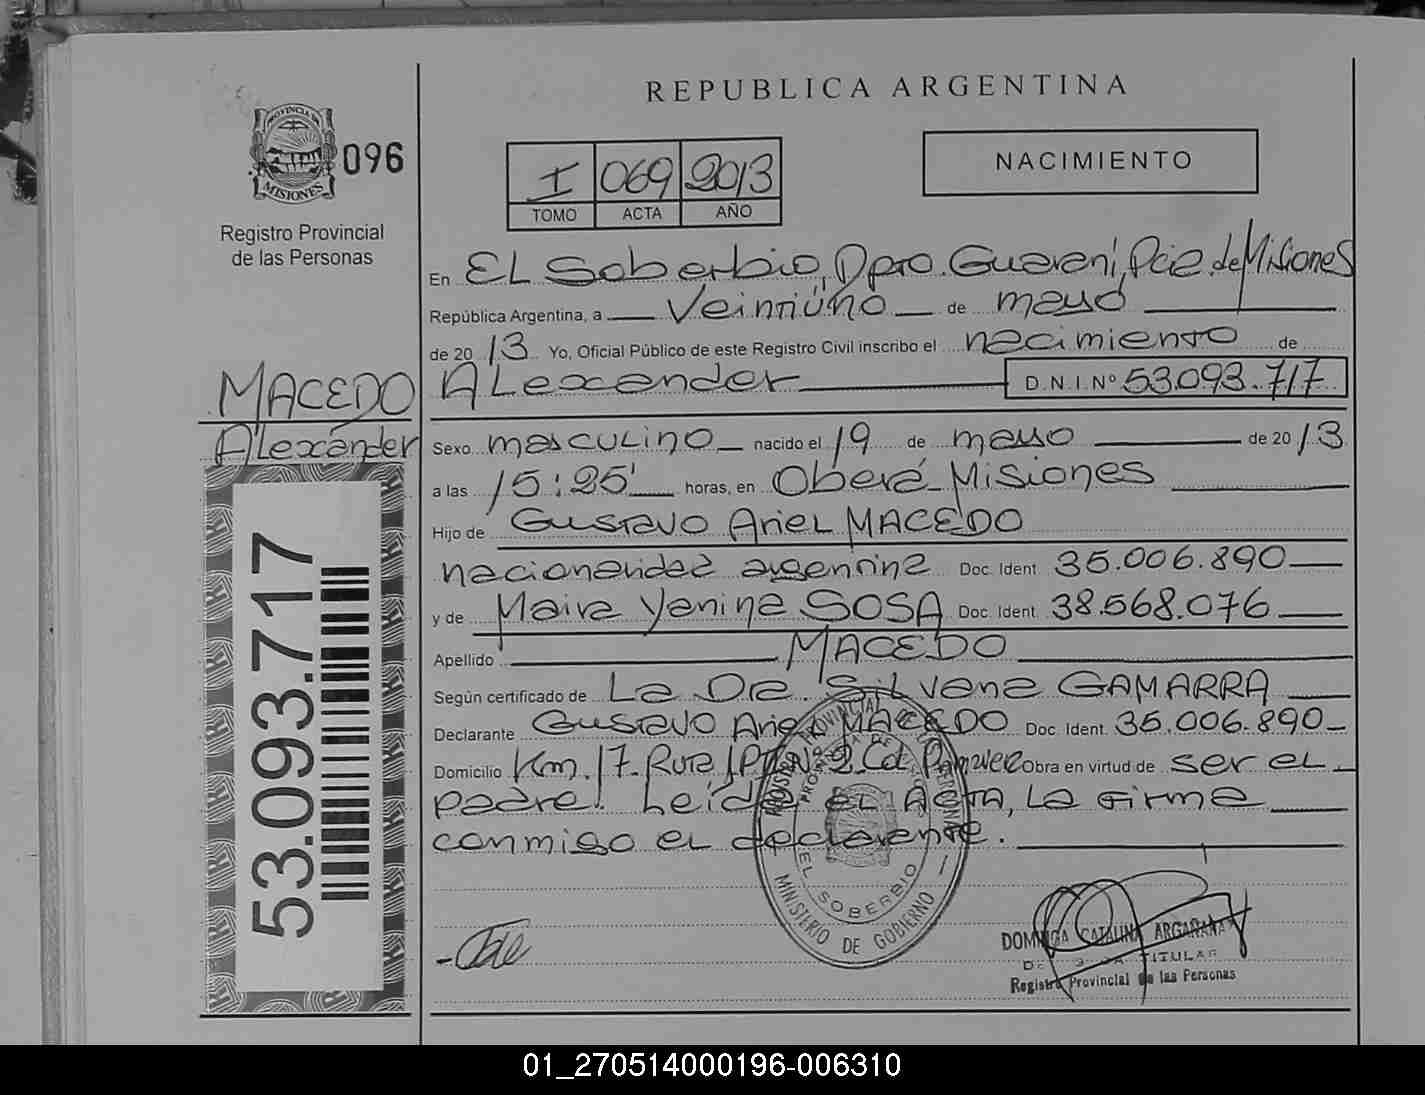 REPUBLICA ARGENTINA
PROVINCIA DE
MISIONES
096
Registro Provincial
de las Personas
I 069 2013
TOMO ACTA AÑO
NACIMIENTO
En EL Soberbio, Dpto. Guaraní, Pcia de Misiones
República Argentina, a Veintiuno de mayo
de 2013 Yo, Oficial Público de este Registro Civil inscribo el nacimiento de
ALexander D.N.I.Nº 53.093.717
MACEDO
ALexander
Sexo masculino nacido el 19 de mayo de 2013
a las 15:25' horas, en Oberá - Misiones
Hijo de Gustavo Ariel MACEDO
nacionalidad argentina Doc. Ident. 35.006.890
y de Maira Yanina SOSA Doc. Ident. 38.568.076
Apellido MACEDO
Según certificado de La Dra. Silvana GAMARRA
Declarante Gustavo Ariel MACEDO Doc. Ident. 35.006.890
Domicilio Km. 17. Ruta Nº 2. Obra en virtud de ser el
padre. Leída el Acta, la firma
conmigo el declarante.
53.093.717
REGISTRO PROVINCIAL DE LAS PERSONAS
PROVINCIA DE MISIONES
EL SOBERBIO
MINISTERIO DE GOBIERNO
DOMINGA CATALINA ARGAÑARA
TITULAR
Registro Provincial de las Personas
01_270514000196-006310